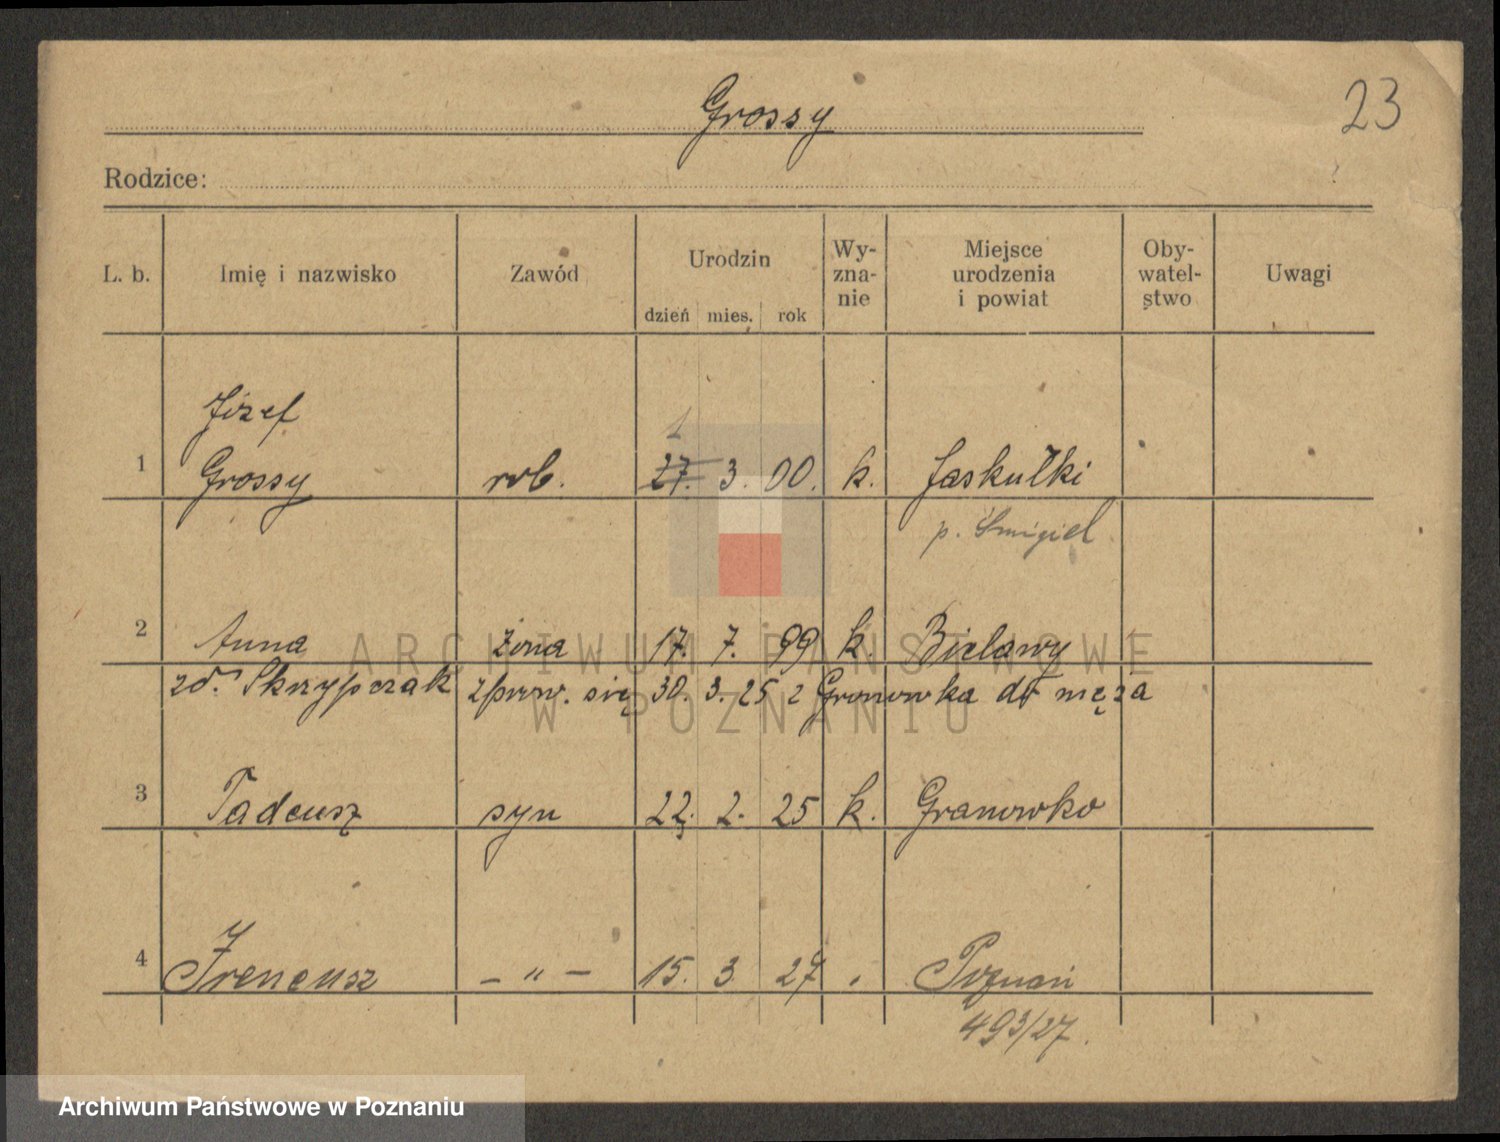 Grossy
23
Rodzice:
L. b. Imię i nazwisko Zawód Urodzin dzień mies. rok Wy-zna-nie Miejsce urodzenia i powiat Oby-watel-stwo Uwagi
Józef
1
1 Grossy rob. 27. 3. 00. k. Jaskułki
p. Śmigiel
2 Anna żona 17. 7. 99 k. Bielawy
zd. Skrzypczak zprow. się 30. 3. 25 z Gronowka do męża
3 Tadeusz syn 22. 2. 25 k. Granowko
4 Ireneusz – " – 15. 3. 27 . Poznań
493/27.
ARCHIWUM PAŃSTWOWE
W POZNANIU
Archiwum Państwowe w Poznaniu